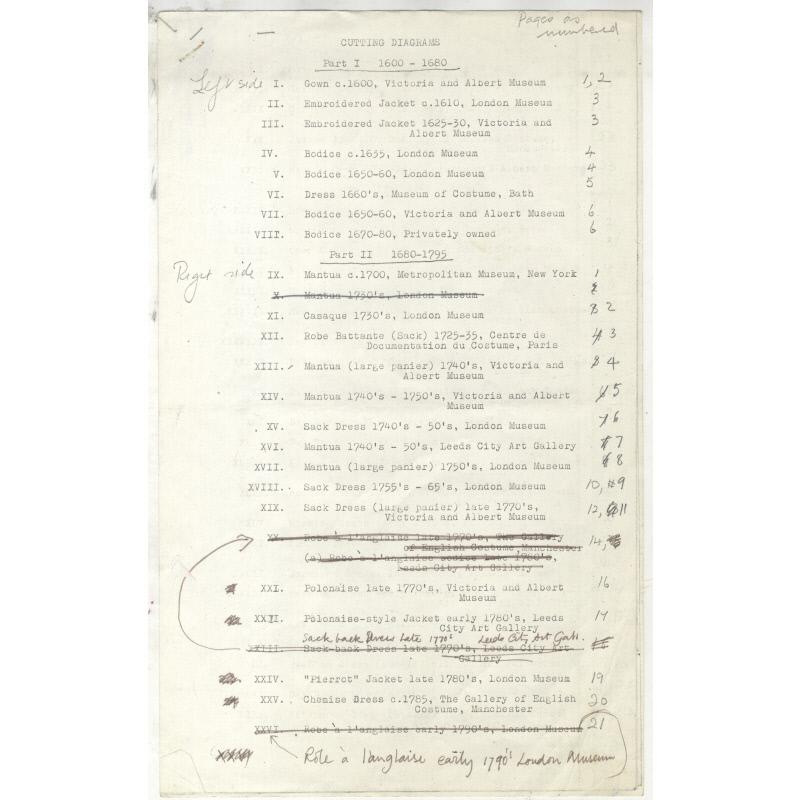 Pages as
numbered
CUTTING DIAGRAMS
Part I 1600 - 1680
Left side I. Gown c.1600, Victoria and Albert Museum 1, 2
II. Embroidered Jacket c.1610, London Museum 3
III. Embroidered Jacket 1625-30, Victoria and 3
Albert Museum
IV. Bodice c.1635, London Museum 4
V. Bodice 1650-60, London Museum 4
VI. Dress 1660's, Museum of Costume, Bath 5
VII. Bodice 1650-60, Victoria and Albert Museum 6
VIII. Bodice 1670-80, Privately owned 6
Part II 1680-1795
Right side IX. Mantua c.1700, Metropolitan Museum, New York 1
X. Mantua 1730's, London Museum
XI. Casaque 1730's, London Museum 2
XII. Robe Battante (Sack) 1725-35, Centre de 3
Documentation du Costume, Paris
XIII. Mantua (large panier) 1740's, Victoria and 4
Albert Museum
XIV. Mantua 1740's - 1750's, Victoria and Albert 5
Museum
XV. Sack Dress 1740's - 50's, London Museum 6
XVI. Mantua 1740's - 50's, Leeds City Art Gallery 7
XVII. Mantua (large panier) 1750's, London Museum 8
XVIII. Sack Dress 1755's - 65's, London Museum 10, 9
XIX. Sack Dress (large panier) late 1770's, 12, 11
Victoria and Albert Museum
XX. Robe à l'anglaise late 1770's, The Gallery 14,
of English Costume, Manchester
(a) Robe à l'anglaise bodice late 1780's,
Leeds City Art Gallery
XXI. Polonaise late 1770's, Victoria and Albert 16
Museum
XXII. Polonaise-style Jacket early 1780's, Leeds 17
City Art Gallery
Sack back Dress Late 1770's Leeds City Art Gall.
XXIII. Sack-back Dress late 1770's, Leeds City Art
Gallery
XXIV. "Pierrot" Jacket late 1780's, London Museum 19
XXV. Chemise Dress c.1785, The Gallery of English 20
Costume, Manchester
XXVI. Robe à l'anglaise early 1790's, London Museum 21
Robe à l'anglaise early 1790's London Museum